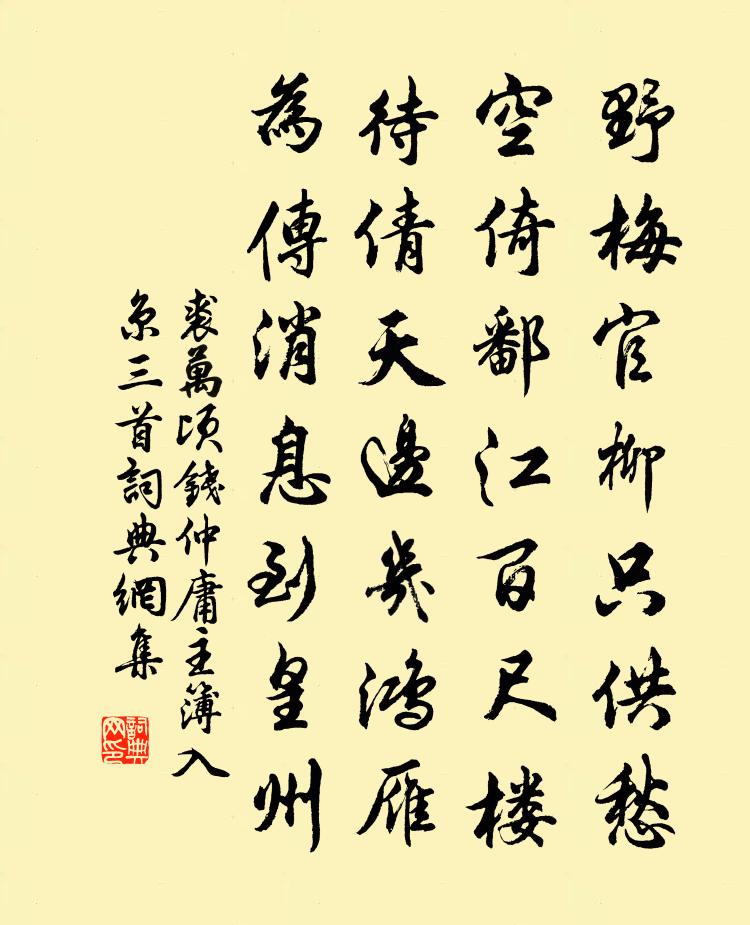 野梅官柳只供愁
空倚鄱江百尺楼
待倩天邊幾鴻雁
為傳消息到皇州
裘萬頃錢仲庸主簿入
京三首詞典網集
詞典網印